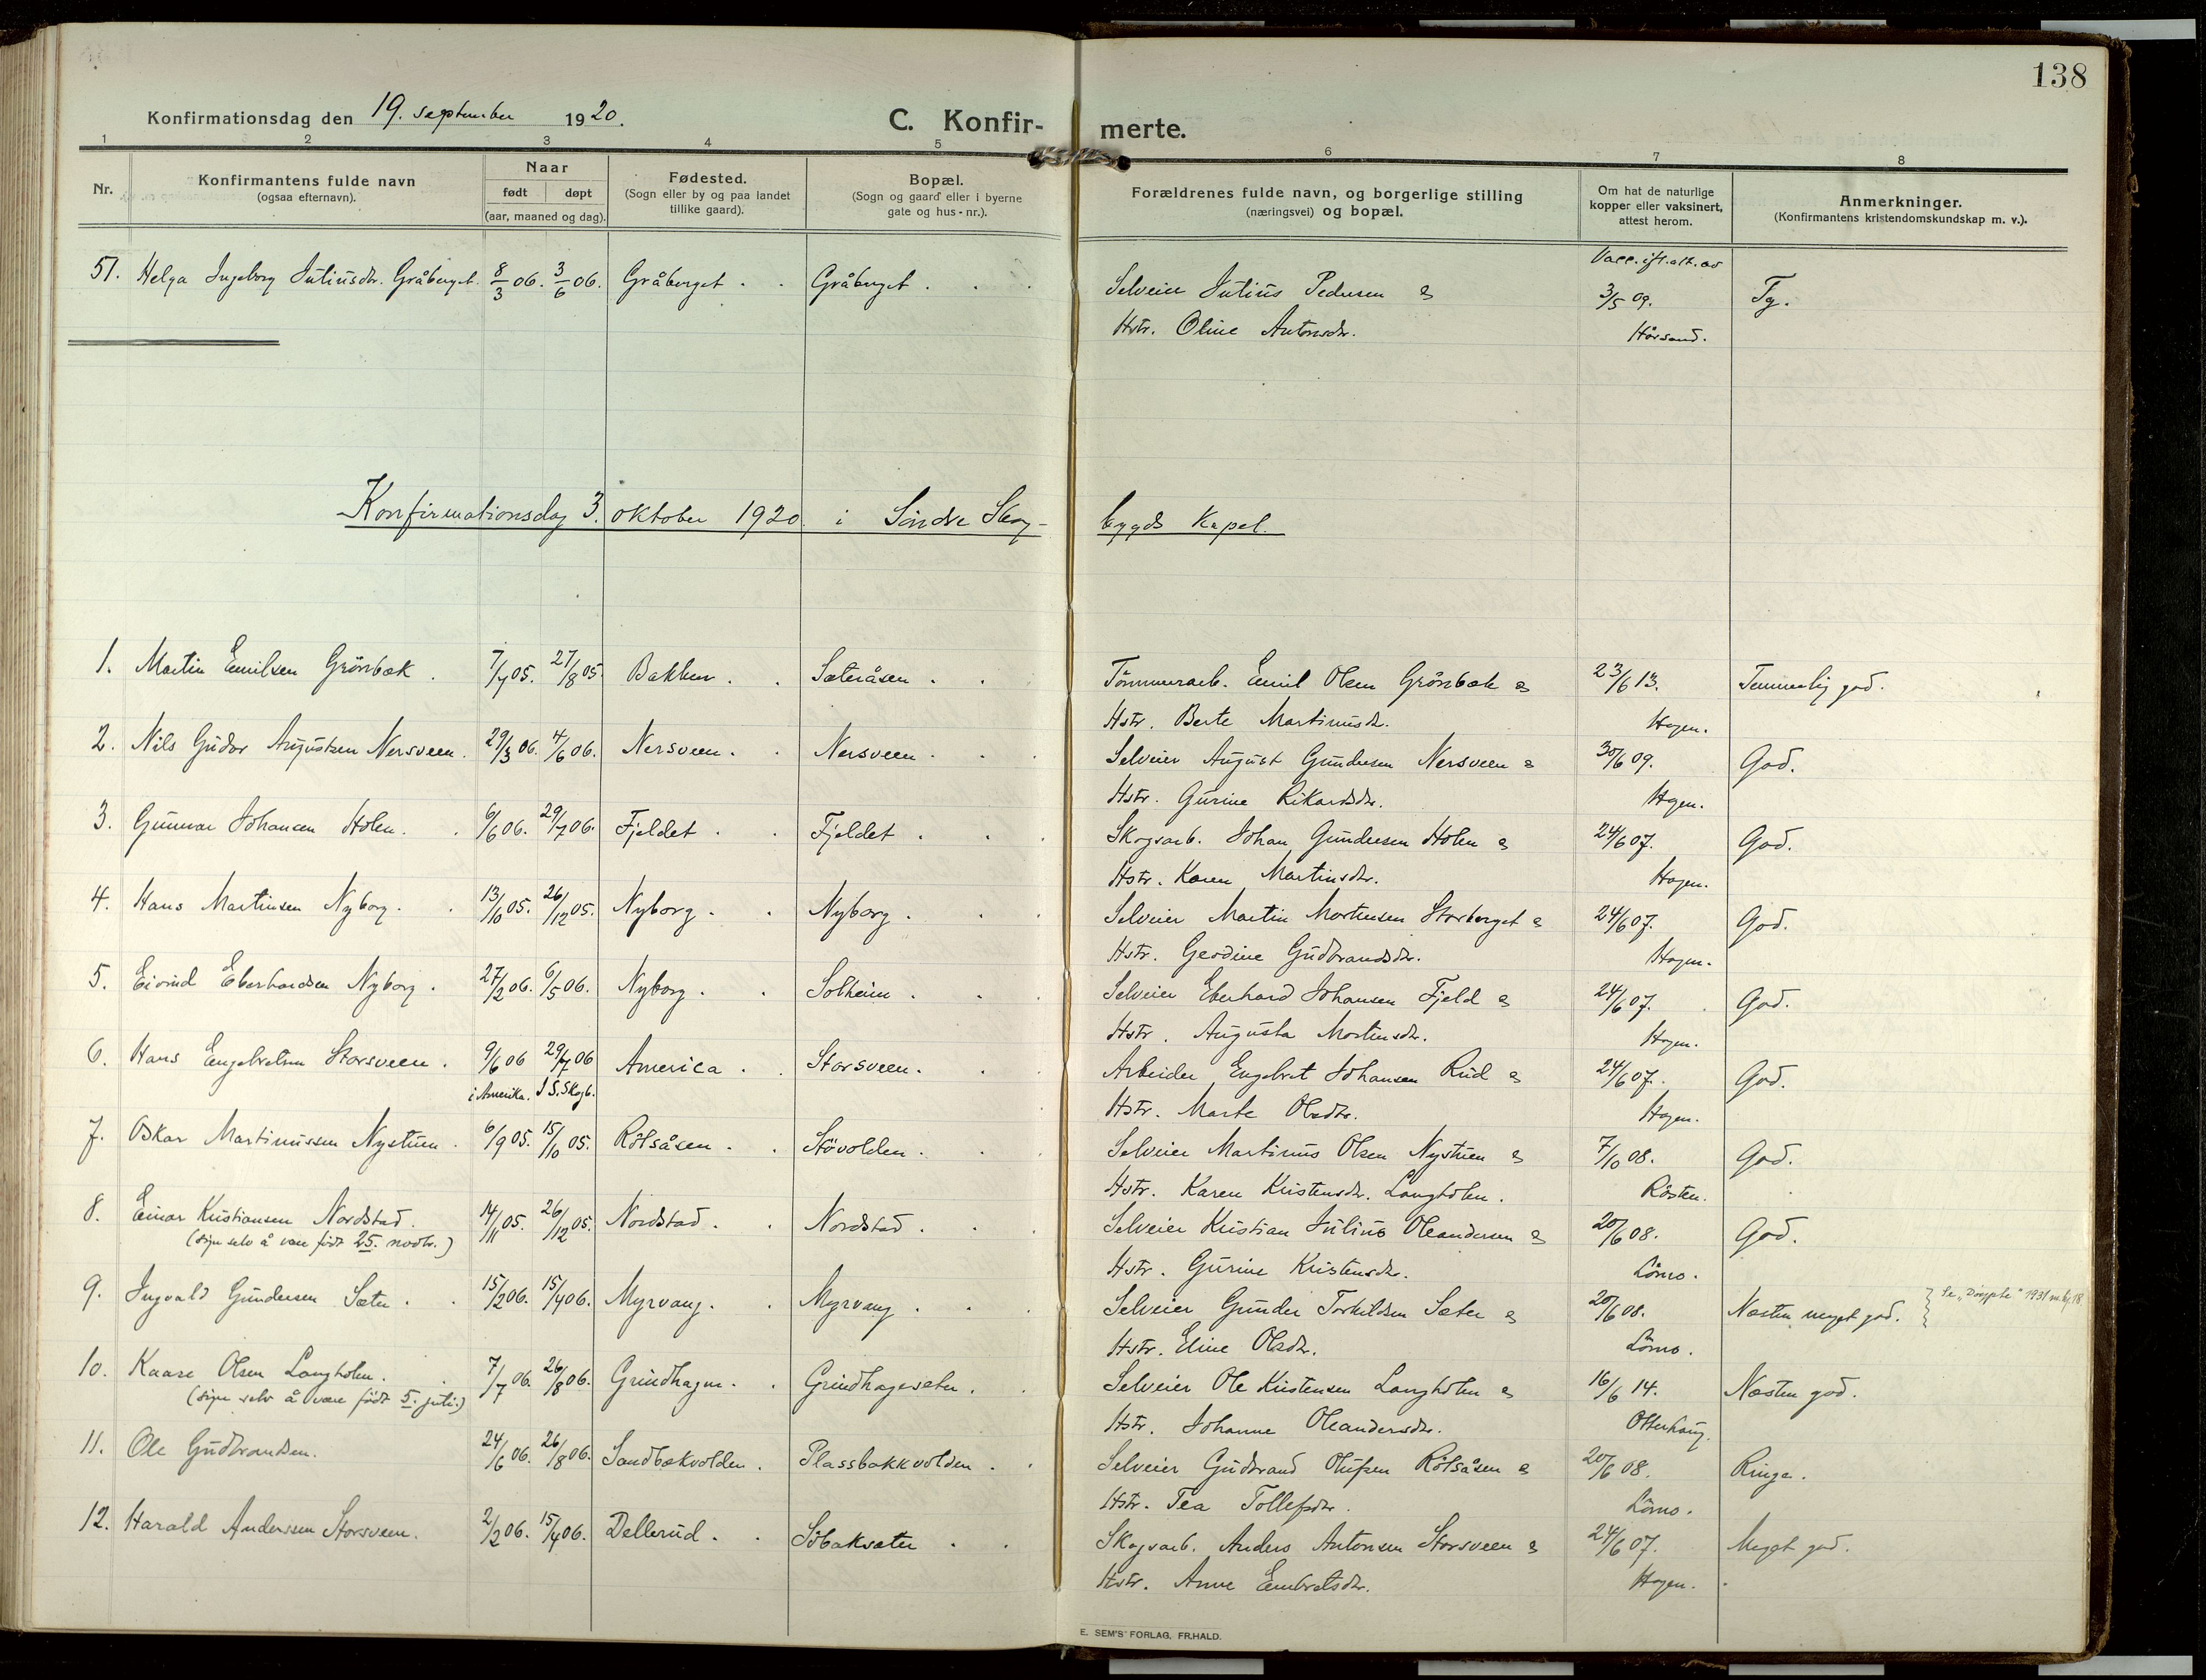 138
Konfirmationsdag den 19. september 1920.
C. Konfir- merte.
1 2 3 4 5 6 7 8
Nr.
Konfirmantens fulde navn
(ogsaa efternavn).
Naar
født døpt
(aar, maaned og dag).
Fødested.
(Sogn eller by og paa landet
tillike gaard).
Bopæl.
(Sogn og gaard eller i byerne
gate og hus-nr.).
Forældrenes fulde navn, og borgerlige stilling
(næringsvei) og bopæl.
Om hat de naturlige
kopper eller vaksinert,
attest herom.
Anmerkninger.
(Konfirmantens kristendomskundskap m. v.).
Vacc. ifl. att. av
51. Helga Ingeborg Juliusdtr. Gråberget. 8/3 06. 3/6 06. Gråberget. Gråberget. Selveier Julius Pedersen & 3/5 09. Tg.
Hstr. Oline Antonsdtr. Hårsand.
Konfirmationsdag 3. oktober 1920 i Söndre Skog- bygds Kapel.
1. Martin Emilsen Grönbæk. 7/7 05. 27/8 05. Bakken. Sæteråsen. Tömmerarb. Emil Olsen Grönbæk & 23/6 13. Temmelig god.
Hstr. Berte Martinusdtr. Hagen.
2. Nils Gudor Augustsen Nersveen. 29/3 06. 4/6 06. Nersveen. Nersveen. Selveier August Gundersen Nersveen & 30/6 09. God.
Hstr. Gurine Rikardsdtr. Hagen.
3. Gunnar Johansen Holen. 6/6 06. 29/7 06. Fjeldet. Fjeldet. Skogsarb. Johan Gundersen Holen & 24/6 07. God.
Hstr. Karen Martinsdtr. Hagen.
4. Hans Martinsen Nyborg. 13/10 05. 26/12 05. Nyborg. Nyborg. Selveier Martin Mortensen Storberget & 24/6 07. God.
Hstr. Gerdine Gudbrandsdtr. Hagen.
5. Eivind Eberhardsen Nyborg. 27/2 06. 6/5 06. Nyborg. Solheim. Selveier Eberhard Johansen Fjeld & 24/6 07. God.
Hstr. Augusta Mortensdtr. Hagen.
6. Hans Engebretsen Storsveen. 9/6 06 29/7 06 America. Storsveen. Arbeider Engebret Johansen Rud & 24/6 07. God.
i Amerika. I S. Skogb.
Hstr. Marte Olsdtr. Hagen.
7. Oskar Martinussen Nystuen. 6/9 05. 15/10 05. Rölsåsen. Stövolden. Selveier Martinus Olsen Nystuen & 7/10 08. God.
Hstr. Karen Kristensdtr. Langholen. Rösten.
8. Einar Kristiansen Nordstad. 14/11 05. 26/12 05. Nordstad. Nordstad. Selveier Kristian Julius Oleandersen & 20/6 08. God.
(siger selv å være født 25. novbr.)
Hstr. Gurine Kristensdtr. Lömo.
9. Ingvald Gundersen Sæter. 15/2 06. 15/4 06. Myrvang. Myrvang. Selveier Gunder Torkildsen Sæter & 20/6 08. Næsten meget god. } Se "Döpte" 1931 m.kj. 18
Hstr. Eline Olsdtr. Lömo.
10. Kaare Olsen Langholen. 7/7 06. 26/8 06. Grindhagen. Grindhagesæter. Selveier Ole Kristensen Langholen & 16/6 14. Næsten god.
(siger selv å være født 5. juli.)
Hstr. Johanne Oleandersdtr. Otterhaug.
11. Ole Gudbrandsen. 24/6 06. 26/8 06. Sandbækvolden. Plassbakkvolden. Selveier Gudbrand Olufsen Rölsåsen & 20/6 08. Ringe.
Hstr. Tea Tollefsdtr. Lömo.
12. Harald Anderssen Storsveen. 2/2 06. 15/4 06. Dellerud. Söbaksæter. Skogsarb. Anders Antonsen Storsveen & 24/6 07. Meget god.
Hstr. Anne Embretsdtr. Hagen.
E. SEM'S FORLAG, FR.HALD.